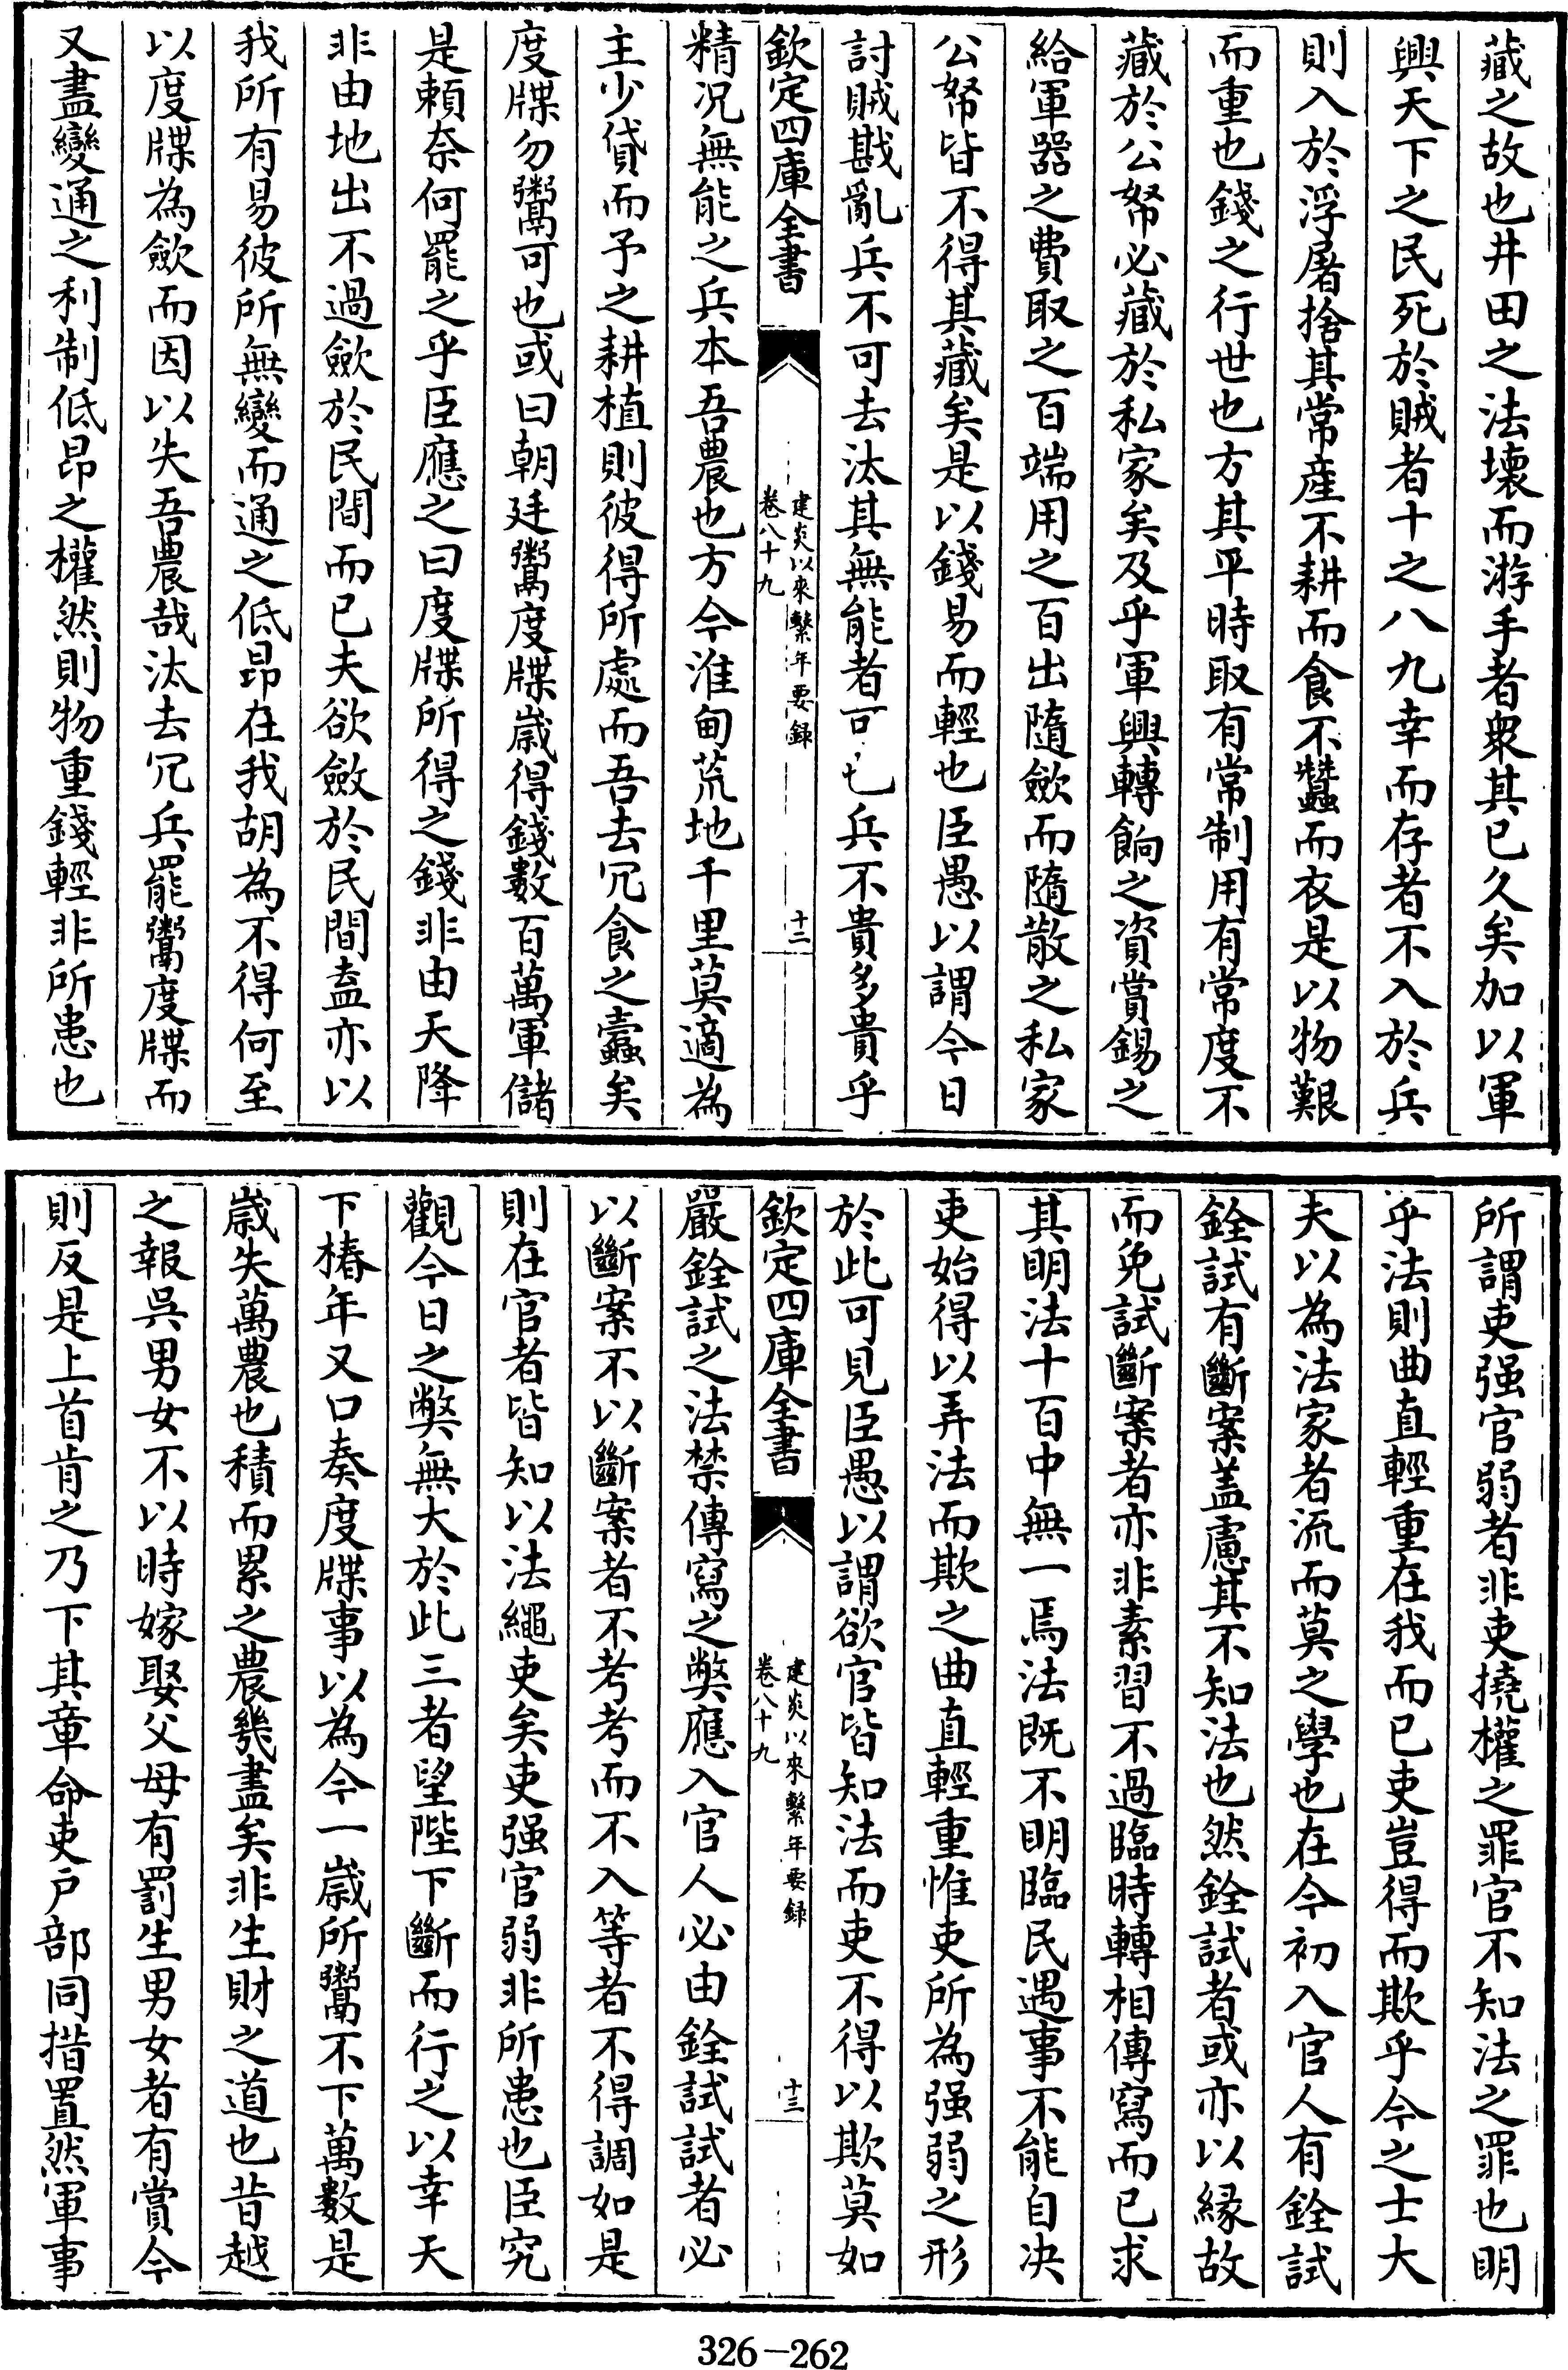 藏之故也井田之法壞而游手者衆其已久矣加以軍
興天下之民死於賊者十之八九幸而存者不入於兵
則入於浮屠捨其常産不耕而食不蠶而衣是以物艱
而重也錢之行世也方其平時取有常制用有常度不
藏於公帑必藏於私家矣及乎軍興轉餉之資賞錫之
給軍器之費取之百端用之百出隨歛而隨散之私家
公帑皆不得其藏矣是以錢易而輕也臣愚以謂今日
討賊戡亂兵不可去汰其無能者可也兵不貴多貴乎
欽定四庫全書
建炎以來繫年要録
卷八十九
十二
精況無能之兵本吾農也方今淮甸荒地千里莫適為
主少貸而予之耕植則彼得所處而吾去冗食之蠧矣
度牒勿鬻可也或曰朝廷鬻度牒歳得錢數百萬軍儲
是頼奈何罷之乎臣應之曰度牒所得之錢非由天降
非由地出不過歛於民間而已夫欲斂於民間盍亦以
我所有易彼所無變而通之低昻在我胡為不得何至
以度牒為歛而因以失吾農哉汰去冗兵罷鬻度牒而
又盡變通之利制低昻之權然則物重錢輕非所患也
所謂吏强官弱者非吏撓權之罪官不知法之罪也明
乎法則曲直輕重在我而已吏豈得而欺乎今之士大
夫以為法家者流而莫之學也在今初入官人有銓試
銓試有斷案盖慮其不知法也然銓試者或亦以縁故
而免試斷案者亦非素習不過臨時轉相傳寫而已求
其明法十百中無一焉法既不明臨民遇事不能自决
吏始得以弄法而欺之曲直輕重惟吏所為强弱之形
於此可見臣愚以謂欲官皆知法而吏不得以欺莫如
欽定四庫全書
建炎以來繫年要録
卷八十九
十三
嚴銓試之法禁傳寫之弊應入官人必由銓試試者必
以斷案不以斷案者不考考而不入等者不得調如是
則在官者皆知以法繩吏矣吏强官弱非所患也臣究
觀今日之弊無大於此三者望陛下斷而行之以幸天
下椿年又口奏度牒事以為今一歳所鬻不下萬數是
歳失萬農也積而累之農幾盡矣非生財之道也昔越
之報吳男女不以時嫁娶父母有罰生男女者有賞今
則反是上首肯之乃下其章命吏户部同措置然軍事
326-262